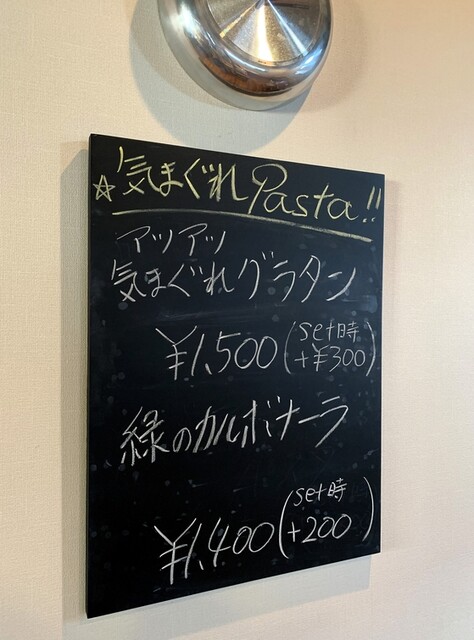 ☆気まぐれPasta!!
アツアツ
気まぐれグラタン
¥1,500(set時
+¥300)
緑のカルボナーラ
¥1,400(set時
+200)